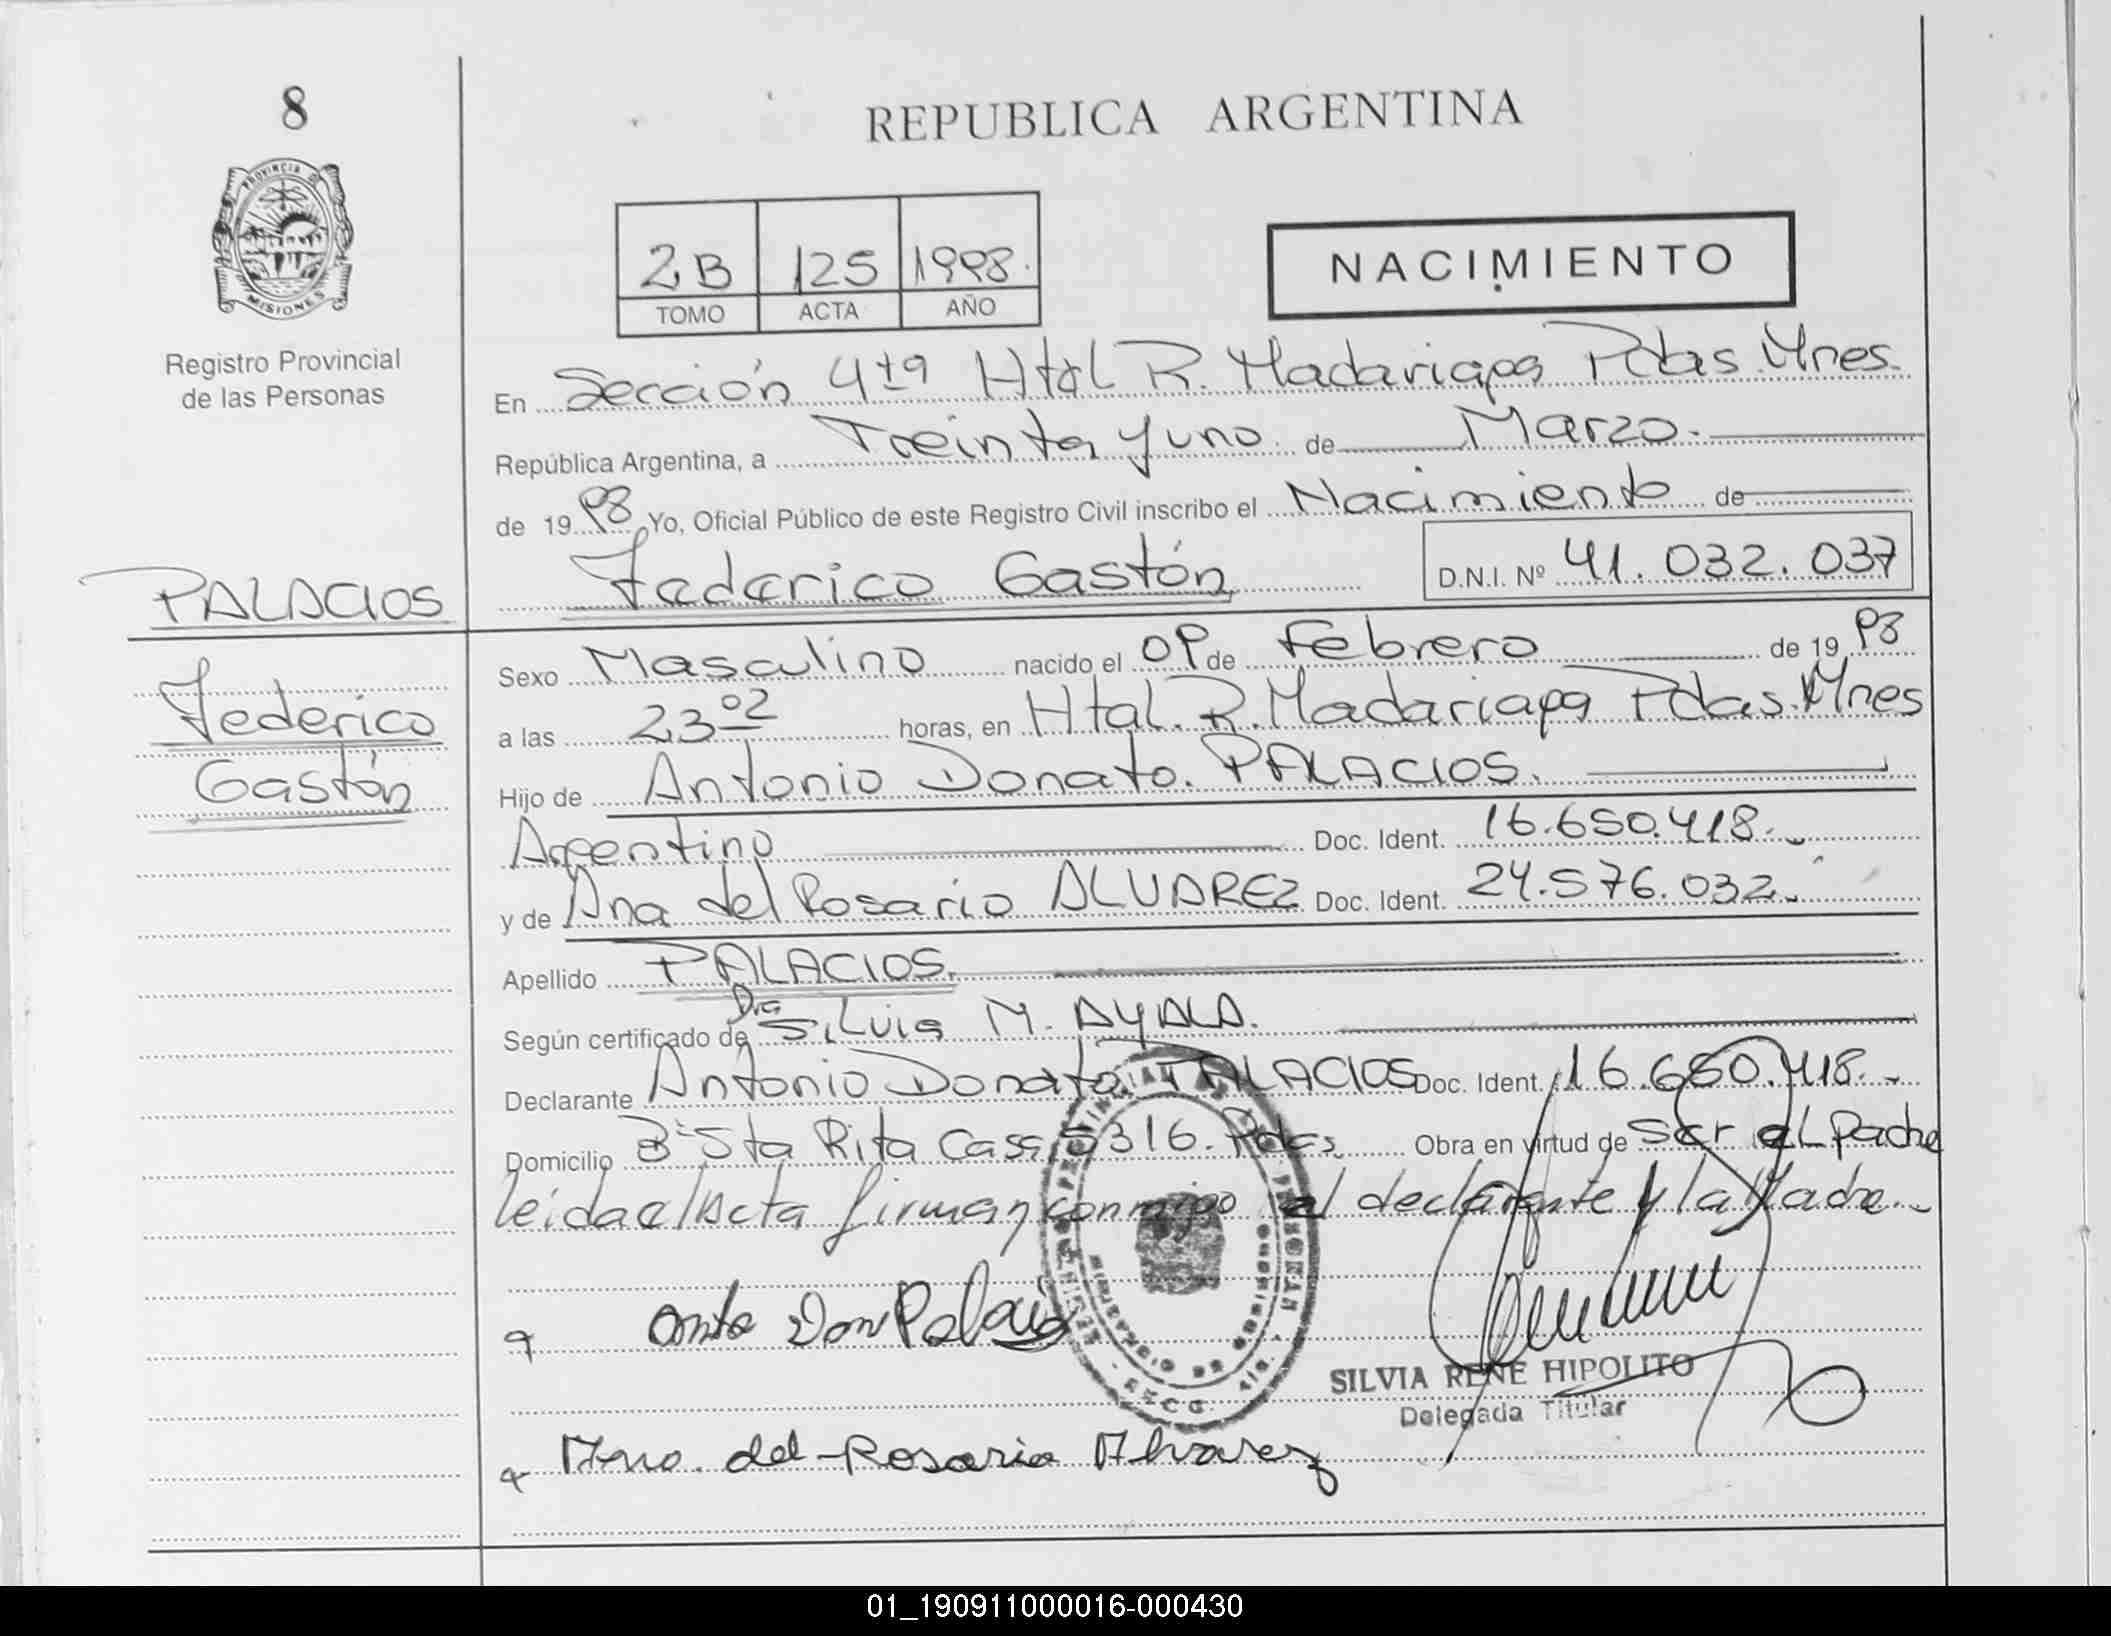 8
REPUBLICA ARGENTINA
PROVINCIA D MISIONES
2B 125 1998.
TOMO ACTA AÑO
NACIMIENTO
Registro Provincial
de las Personas
En Sección 4ta Htal R. Madariaga Pdas. Mnes.
República Argentina, a Treinta y uno de Marzo.
de 19 98 Yo, Oficial Público de este Registro Civil inscribo el Nacimiento de
Federico Gastón D.N.I. Nº 41.032.037
PALACIOS
Federico
Gastón
Sexo Masculino nacido el 09 de Febrero de 19 98
a las 23 02 horas, en Htal. R. Madariaga Pdas. Mnes
Hijo de Antonio Donato. PALACIOS.
Argentino Doc. Ident. 16.650.418.
y de Ana del Rosario ALVAREZ Doc. Ident. 24.576.032.
Apellido PALACIOS.
Según certificado de Dra Silvia M. AYALA.
Declarante Antonio Donato PALACIOS Doc. Ident. 16.650.418.
Domicilio Bº Sta Rita Casa 5316. Pdas Obra en virtud de Ser el Padre
leída el Acta firman conmigo el declarante y la Madre.
Palacio
SILVIA RENE HIPOLITO
Delegada Titular
Ana. del Rosario Alvarez
01_190911000016-000430